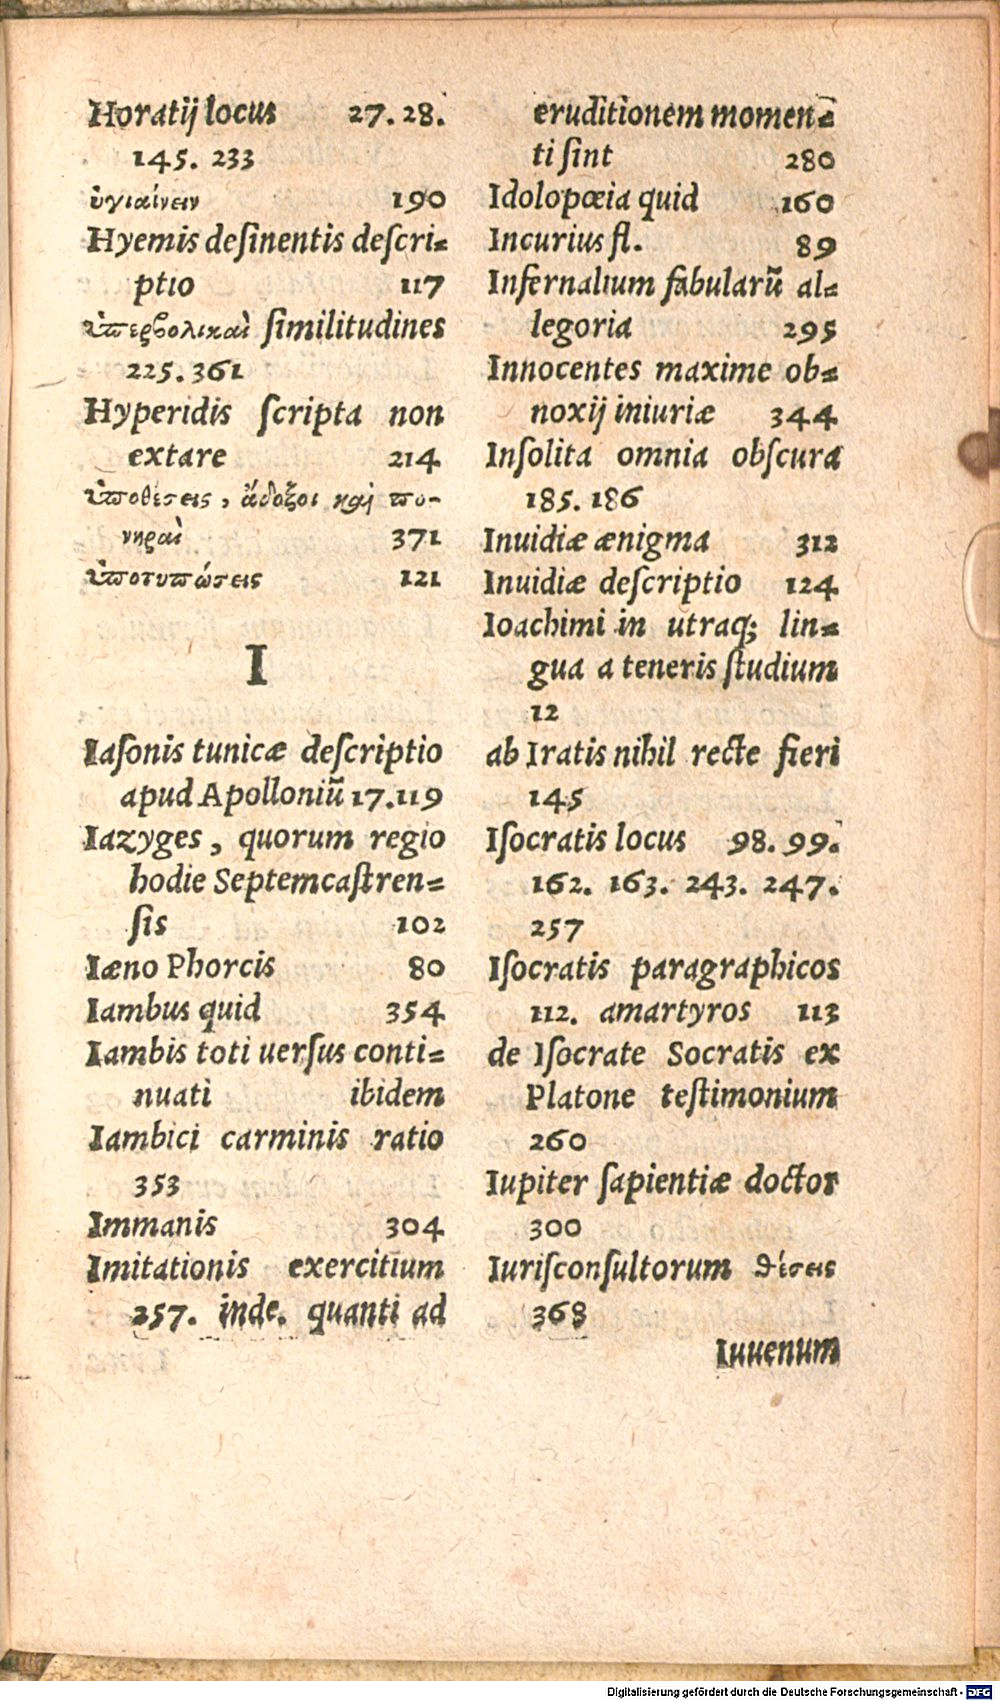 Horatij locus 27.28.
145. 233
ὑγιαίνειν 190
Hyemis desinentis descri-
ptio 117
ὑπερβολικαὶ similitudines
225.361
Hyperidis scripta non
extare 214
ὑποθέσεις, ἄδοξοι καὶ πο-
νηραὶ 371
ὑποτυπώσεις 121
I
Iasonis tunicæ descriptio
apud Apolloniũ 17.119
Iazyges, quorum regio
hodie Septemcastren-
sis 102
Iæno Phorcis 80
Iambus quid 354
Iambis toti uersus conti-
nuati ibidem
Iambici carminis ratio
353
Immanis 304
Imitationis exercitium
257. inde. quanti ad
eruditionem momen-
ti sint 280
Idolopœia quid 160
Incurius fl. 89
Infernalium fabularũ al-
legoria 295
Innocentes maxime ob-
noxij iniuriæ 344
Insolita omnia obscura
185. 186
Inuidiæ ænigma 312
Inuidiæ descriptio 124
Ioachimi in utraq; lin-
gua a teneris studium
12
ab Iratis nihil recte fieri
145
Isocratis locus 98. 99.
162. 163. 243. 247.
257
Isocratis paragraphicos
112. amartyros 113
de Isocrate Socratis ex
Platone testimonium
260
Iupiter sapientiæ doctor
300
Iurisconsultorum θέσεις
368
Iuuenum
Digitalisierung gefördert durch die Deutsche Forschungsgemeinschaft - DFG